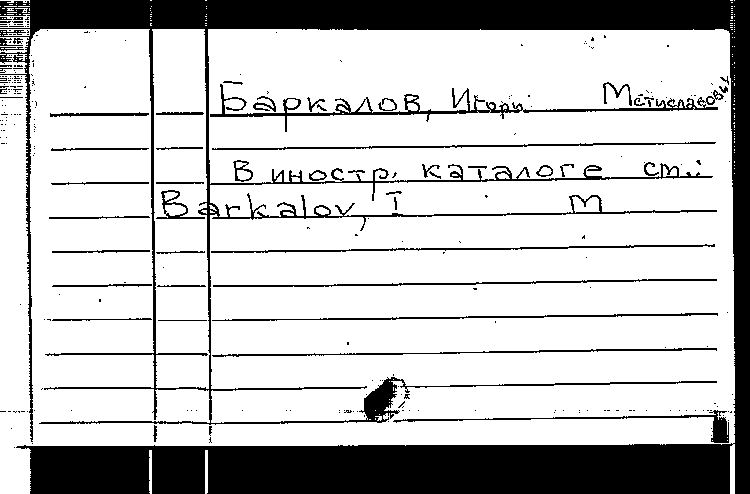 Баркалов, Игорь Мстиславович
В иностр. каталоге см.:
Barkalov, I M